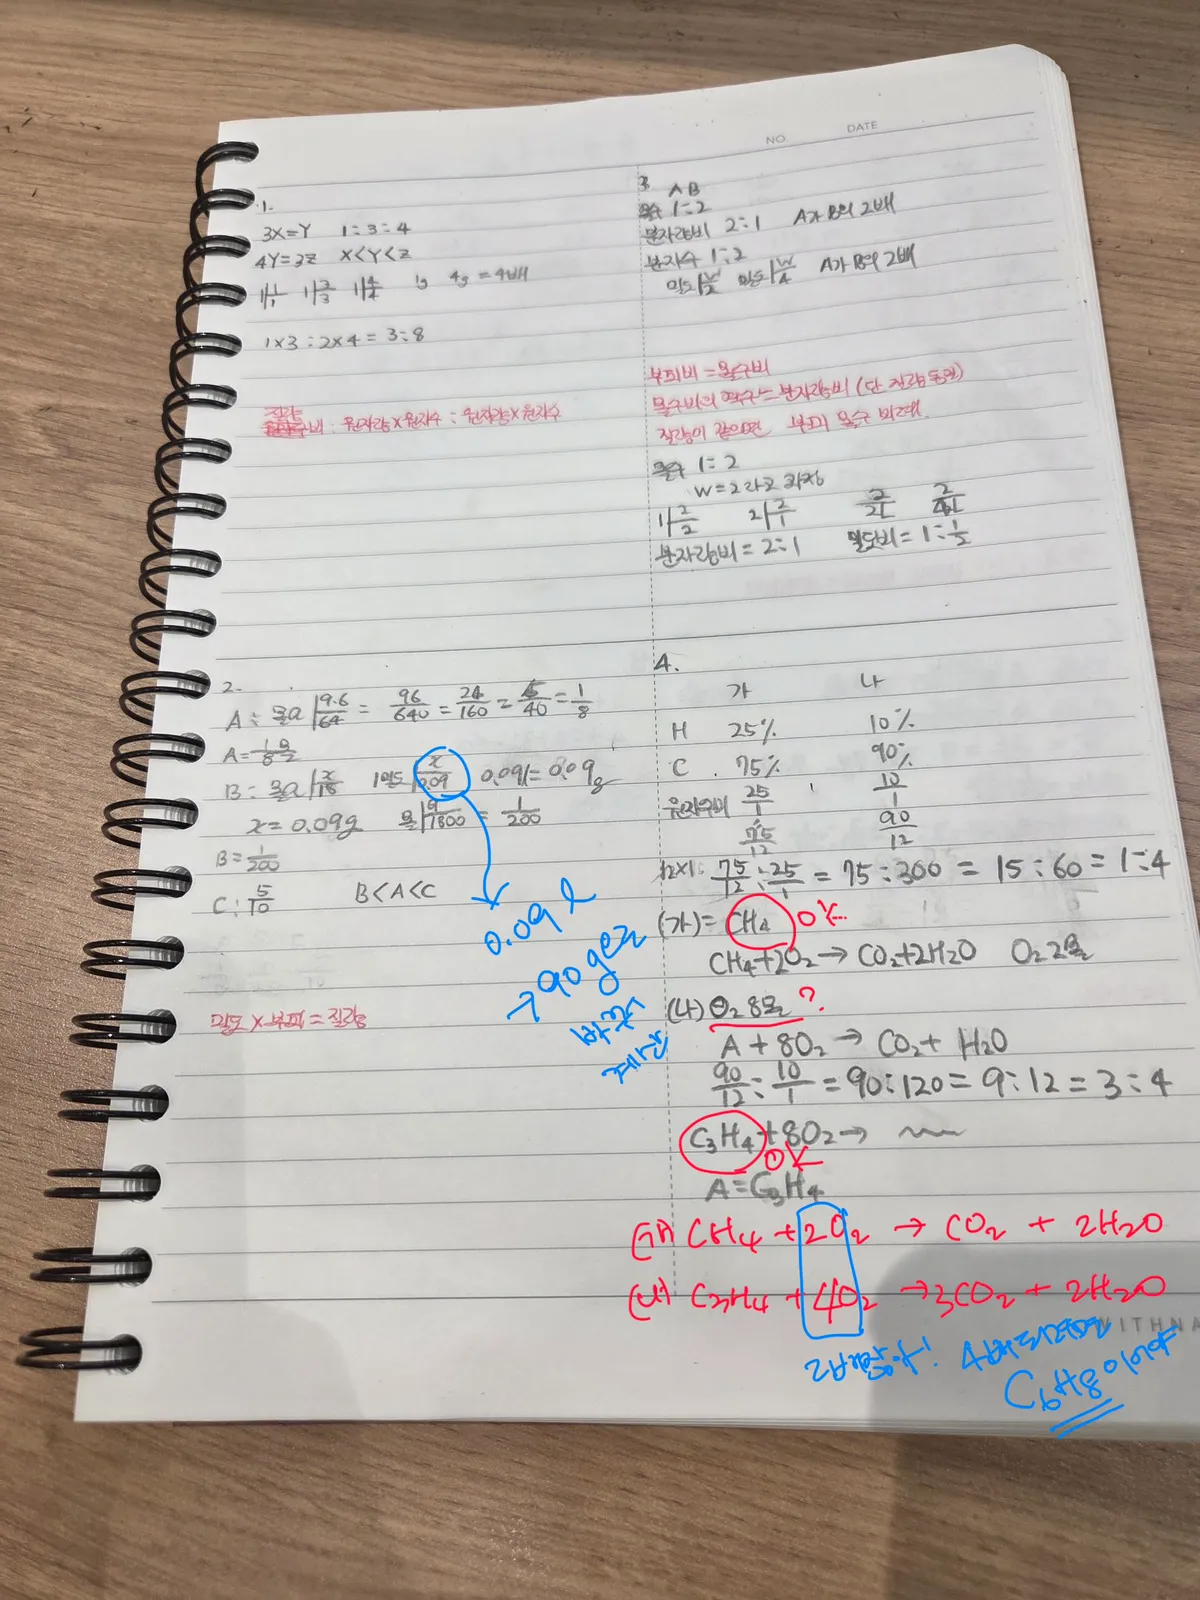 NO.
DATE
1.
3X=Y 1:3:4
4Y=3Z X<Y<Z
1|1/1 1|3/3 1|4/4 1g 4g = 4배
1×3:2×4=3:8
질량비: 원자량×원자수:원자량×원자수
2.
A: 몰a|9.6/64 = 96/640 = 24/160 = 5/40 = 1/8
A=1/8몰
B: 몰a|x/18 1밀도|x/0.09 0.09l=0.09g
x=0.09g 몰|9/1800 = 1/200
B=1/200
C: 5/10 B<A<C
0.09 l
→90g으로
바꿔
계산
밀도×부피=질량
3. A B
몰수 1:2
분자량비 2:1 A가 B의 2배
분자수 1:2
밀도|w/2 밀도|w/4 A가 B의 2배
부피비=몰수비
몰수비의 역수=분자량비 (단 질량동일)
질량이 같으면 부피 몰수 비례.
몰수 1:2
W=2라고 가정
1|2/2 2|2/1 2/2L 2/4L
분자량비=2:1 밀도비=1:1/2
4.
가 나
H 25% 10%
C 75% 90%
원자수비 25/1 10/1
75/12 90/12
12×1: 75/12:25/1=75:300=15:60=1:4
(가)=CH4 OK..
CH4+2O2→CO2+2H2O O2 2몰
(나) O2 8몰 ?
A+8O2→CO2+H2O
90/12:10/1=90:120=9:12=3:4
C3H4+8O2→
OK
A=C3H4
(가) CH4+2O2→CO2+2H2O
(나) C3H4+4O2→3CO2+2H2O
WITHNA
2배잖아! 4배 되려면
C6H8이어야